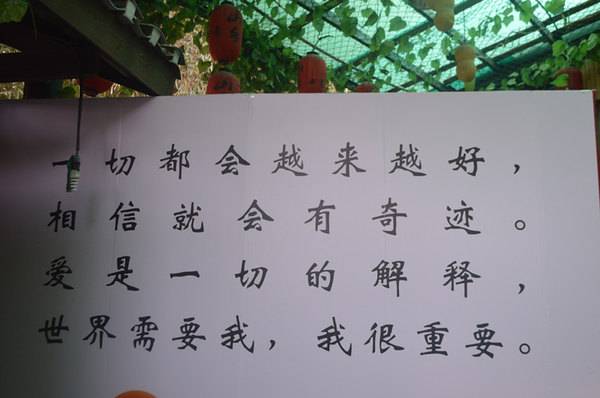 一切都会越来越好，
相信就会有奇迹。
爱是一切的解释，
世界需要我，我很重要。